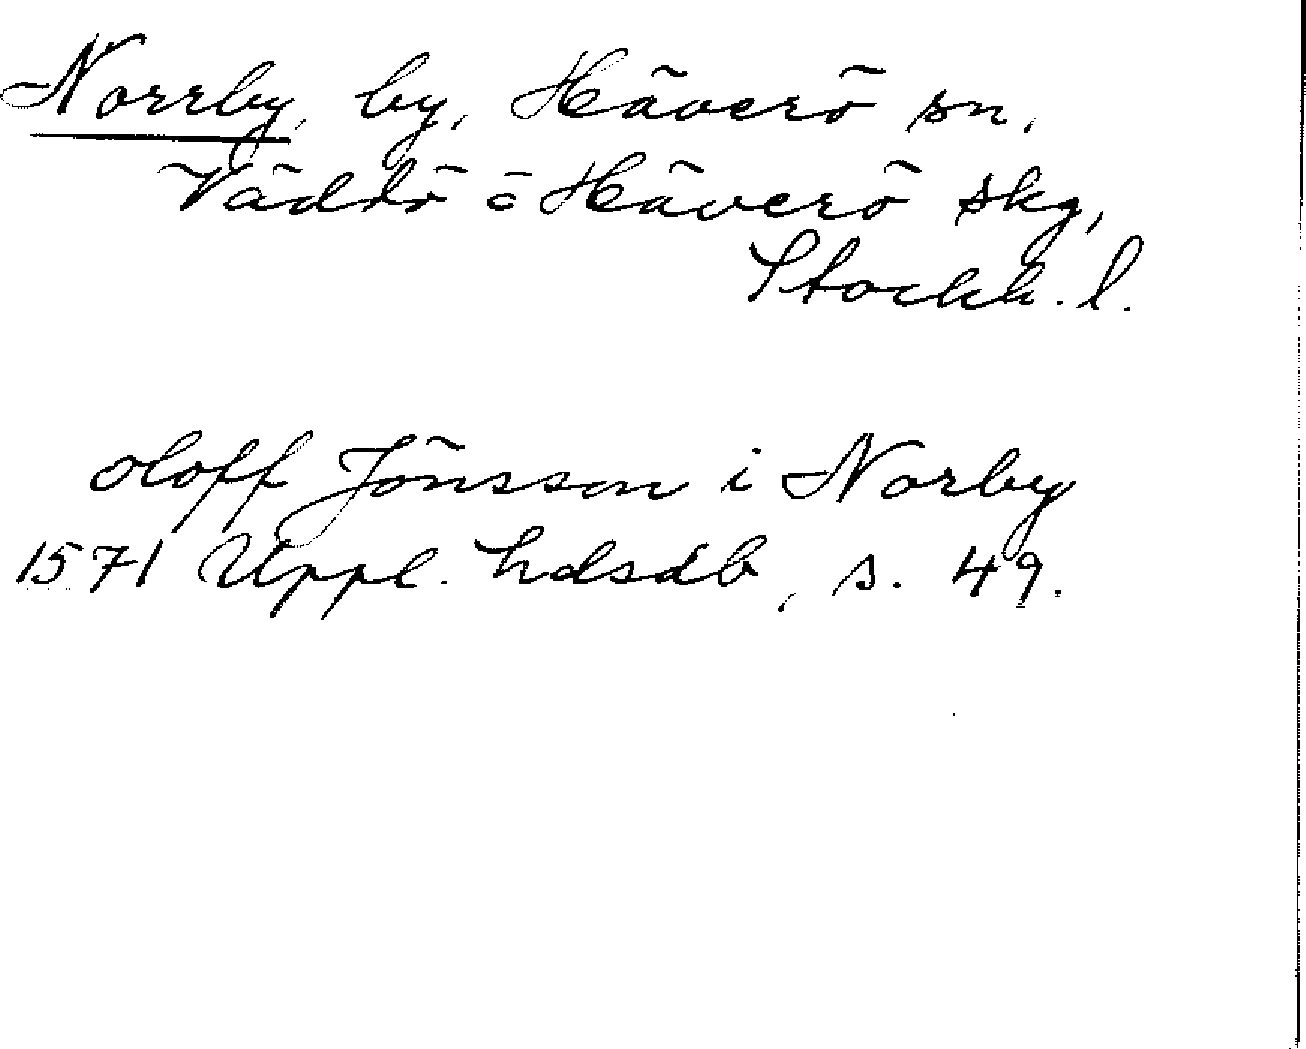 Norrby, by, Häverö sn,
Väddö o Häverö skg,
Stockh. l.
oloff Jönsson i Norby
1571 Uppl. hdsdb, s. 49.